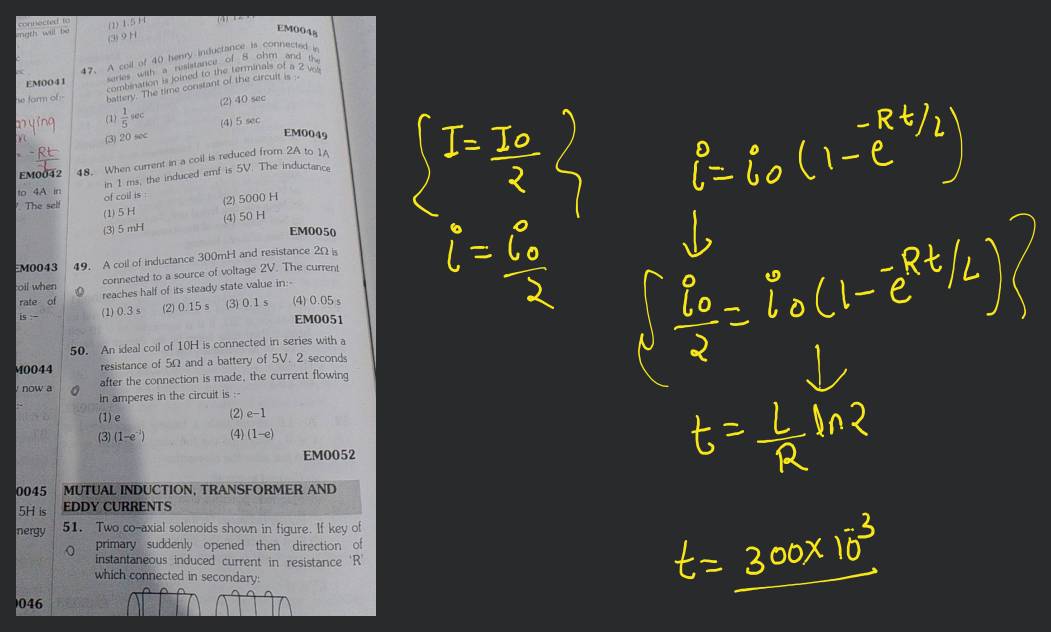 connected to
ength will be
EM0041
ne form of:-
- Rt
EM0042
to 4A in
. The self
EM0043
oil when
rate of
is :-
M0044
now a
0045
5H is
nergy
0046
(1) 1.5 H
(3) 9 H
EM0048
47. A coil of 40 henry inductance is connected in
series with a resistance of 8 ohm and the
combination is joined to the terminals of a 2 volt
battery. The time constant of the circuit is :-
(1) 1/5 sec
(2) 40 sec
(3) 20 sec
(4) 5 sec
EM0049
48. When current in a coil is reduced from 2A to 1A
in 1 ms, the induced emf is 5V. The inductance
of coil is :
(1) 5 H
(2) 5000 H
(3) 5 mH
(4) 50 H
EM0050
49. A coil of inductance 300mH and resistance 2Ω is
connected to a source of voltage 2V. The current
reaches half of its steady state value in:-
(1) 0.3 s (2) 0.15 s (3) 0.1 s (4) 0.05 s
EM0051
50. An ideal coil of 10H is connected in series with a
resistance of 5Ω and a battery of 5V. 2 seconds
after the connection is made, the current flowing
in amperes in the circuit is :-
(1) e
(2) e–1
(3) (1–e⁻¹)
(4) (1–e)
EM0052
MUTUAL INDUCTION, TRANSFORMER AND
EDDY CURRENTS
51. Two co-axial solenoids shown in figure. If key of
primary suddenly opened then direction of
instantaneous induced current in resistance 'R'
which connected in secondary:
{I = I0/2}
i = i0/2
i = i0 (1 - e^-Rt/L)
{i0/2 = i0 (1 - e^-Rt/L)}
t = L/R ln2
t = 300 x 10^-3